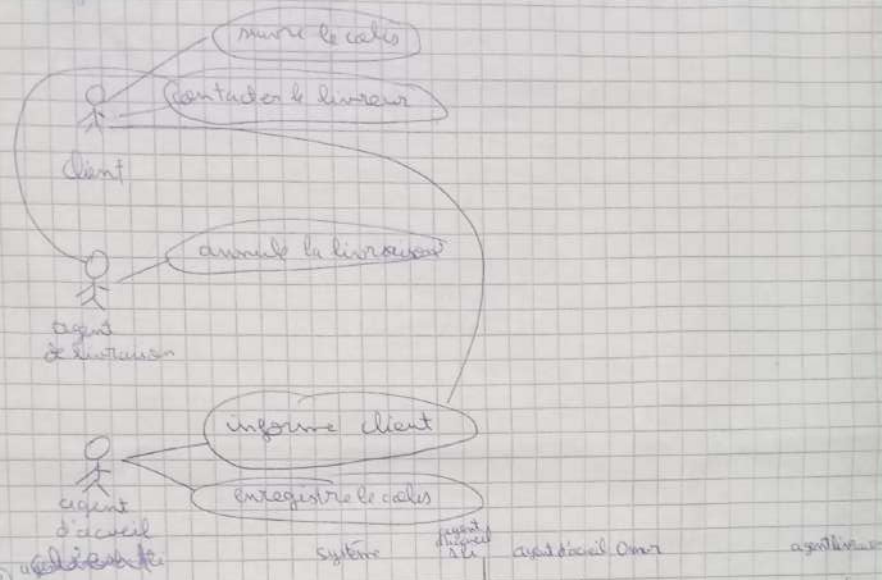 suivre le colis
contacter le livreur
client
annule la livraison
agent
de livraison
informe client
enregistre le colis
agent
d'acueil
système
agent d'acieil Omar
agent livreur